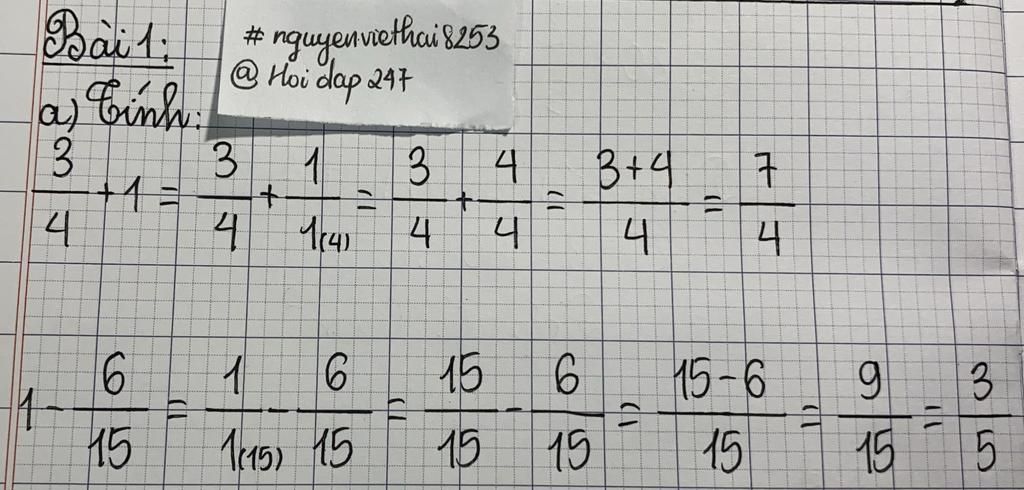 Bài 1:
# nguyenviethai8253
@ Hoi dap 247
a) Tính:
3/4 + 1 = 3/4 + 1/1(4) = 3/4 + 4/4 = 3+4/4 = 7/4
1 - 6/15 = 1/1(15) - 6/15 = 15/15 - 6/15 = 15-6/15 = 9/15 = 3/5